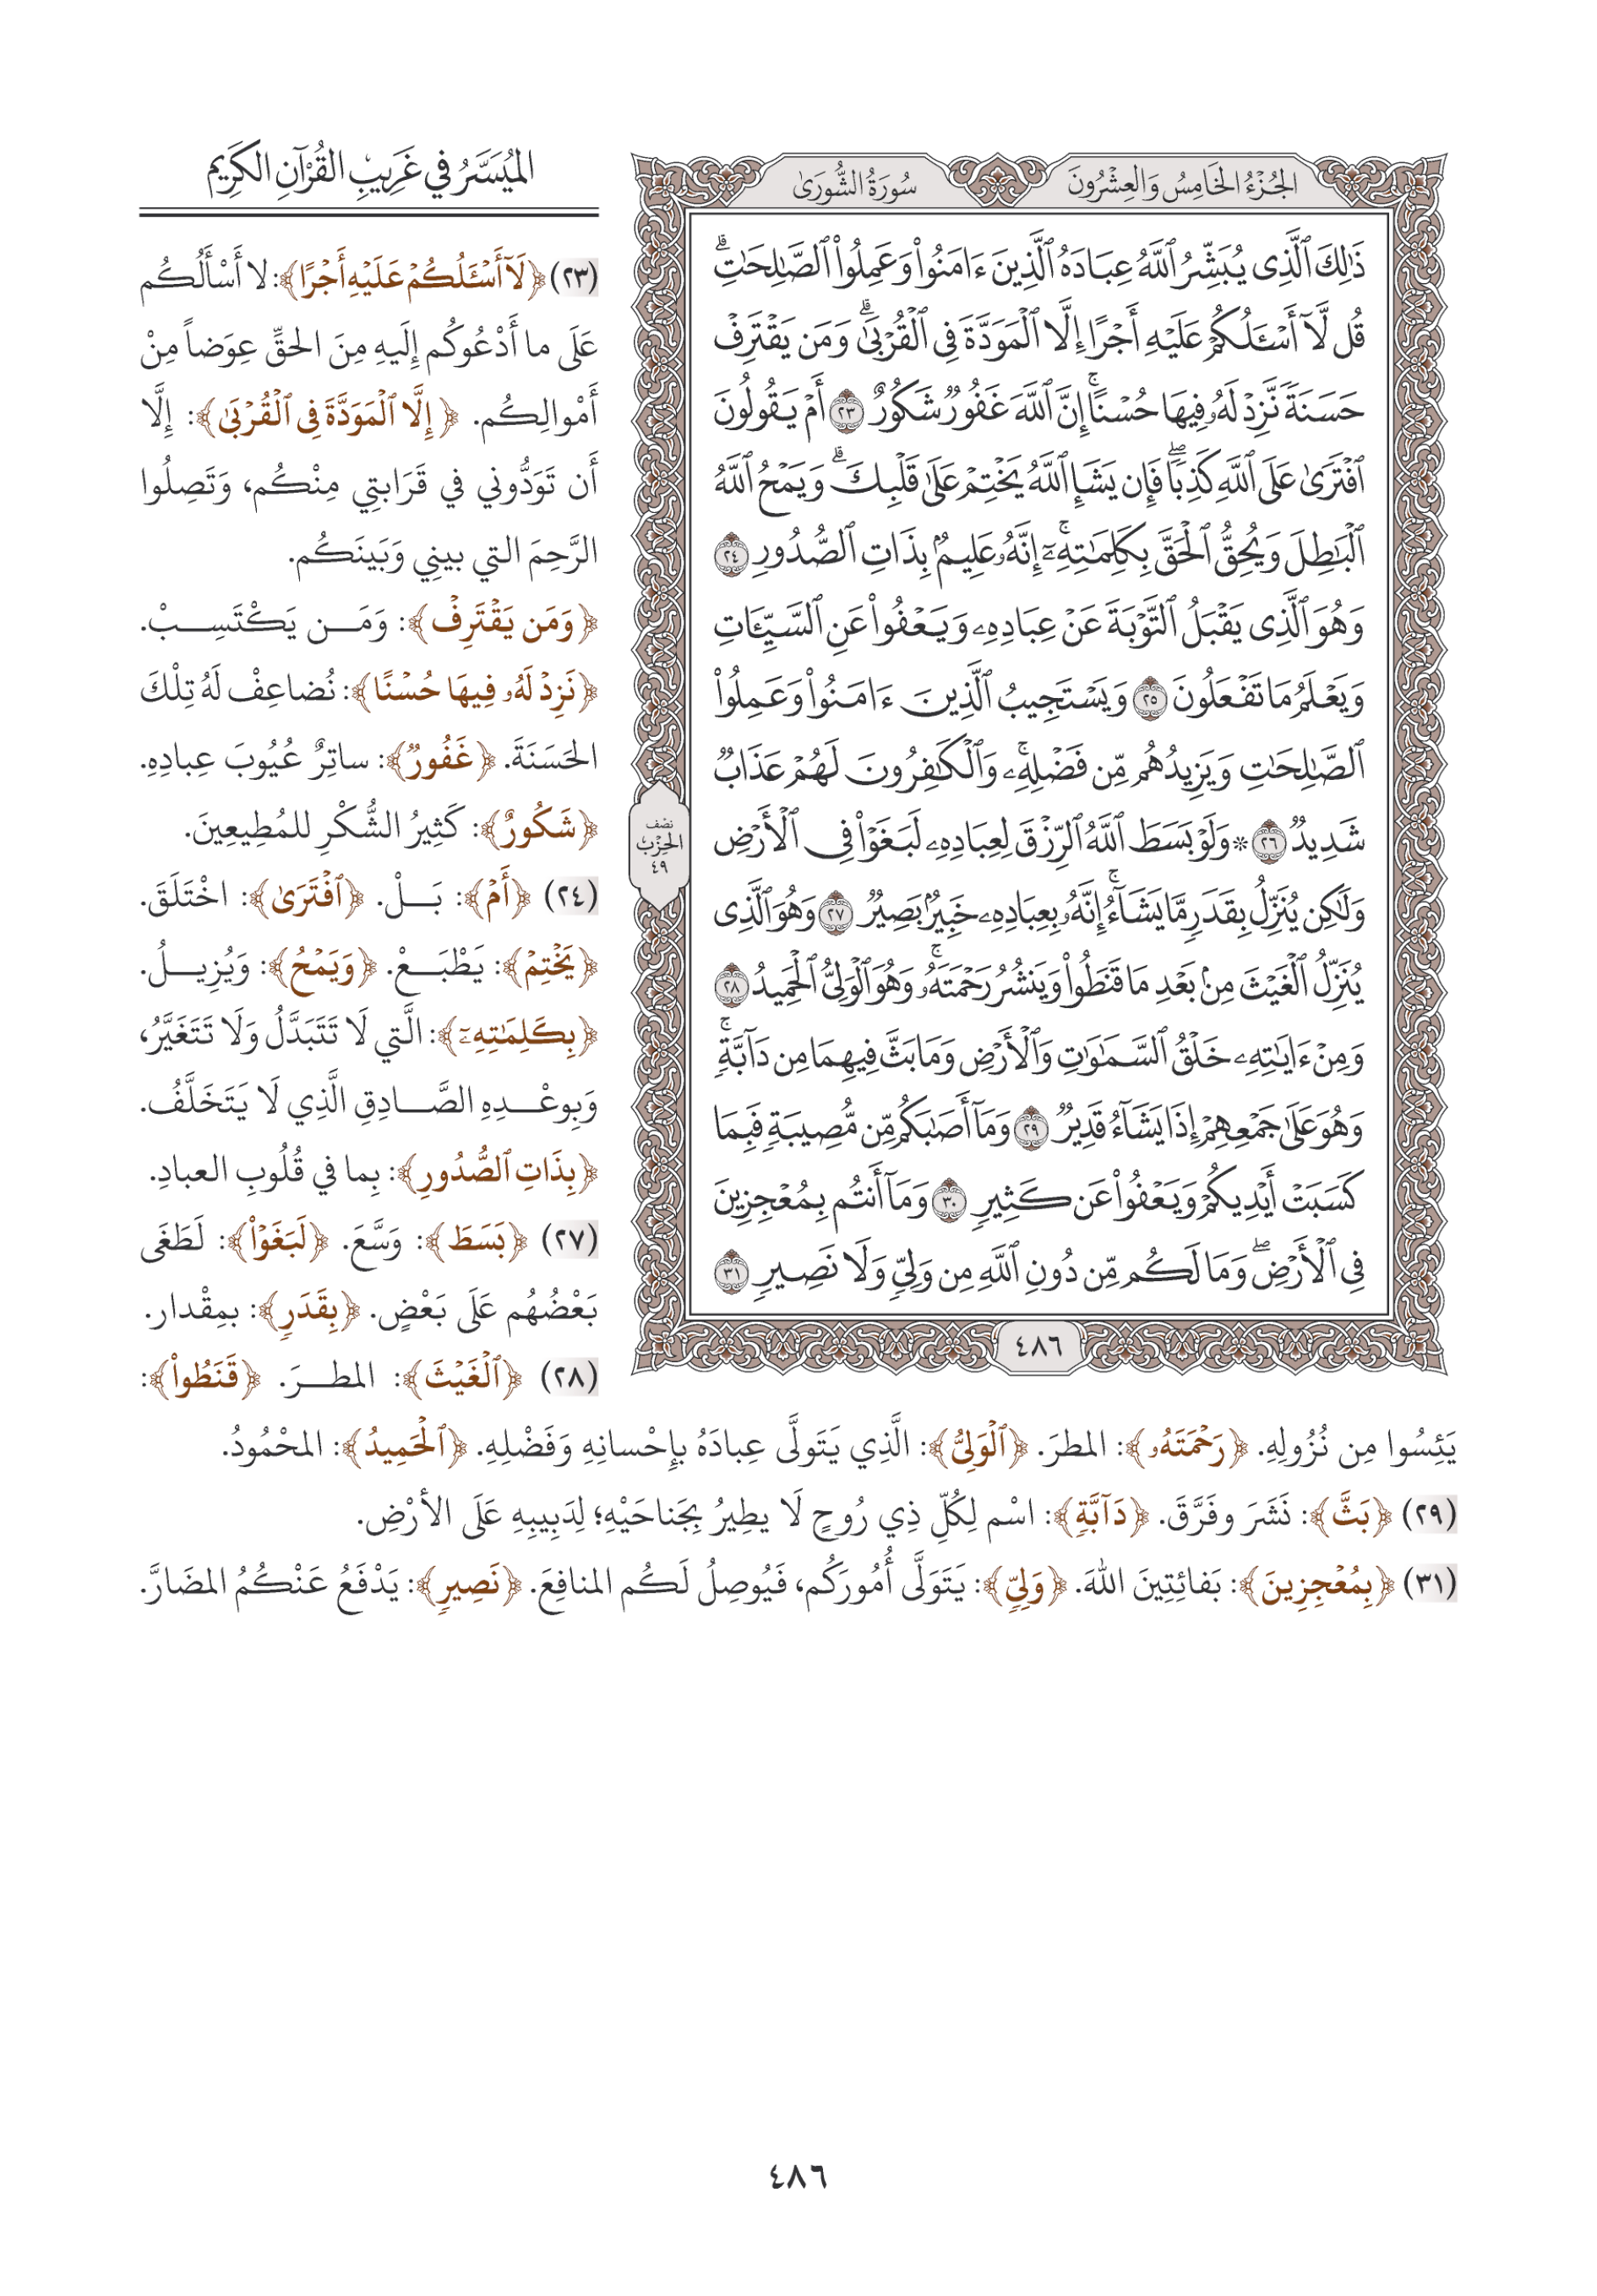 الجُزْءُ الخَامِسُ وَالعِشْرُونَ
سُورَةُ الشُّورَىٰ
ذَٰلِكَ ٱلَّذِى يُبَشِّرُ ٱللَّهُ عِبَادَهُ ٱلَّذِينَ ءَامَنُوا۟ وَعَمِلُوا۟ ٱلصَّـٰلِحَـٰتِۗ
قُل لَّآ أَسْـَٔلُكُمْ عَلَيْهِ أَجْرًا إِلَّا ٱلْمَوَدَّةَ فِى ٱلْقُرْبَىٰۗ وَمَن يَقْتَرِفْ
حَسَنَةً نَّزِدْ لَهُۥ فِيهَا حُسْنًاۚ إِنَّ ٱللَّهَ غَفُورٌ شَكُورٌ ٢٣ أَمْ يَقُولُونَ
ٱفْتَرَىٰ عَلَى ٱللَّهِ كَذِبًاۖ فَإِن يَشَإِ ٱللَّهُ يَخْتِمْ عَلَىٰ قَلْبِكَۗ وَيَمْحُ ٱللَّهُ
ٱلْبَـٰطِلَ وَيُحِقُّ ٱلْحَقَّ بِكَلِمَـٰتِهِۦٓۚ إِنَّهُۥ عَلِيمٌۢ بِذَاتِ ٱلصُّدُورِ ٢٤
وَهُوَ ٱلَّذِى يَقْبَلُ ٱلتَّوْبَةَ عَنْ عِبَادِهِۦ وَيَعْفُوا۟ عَنِ ٱلسَّيِّـَٔاتِ
وَيَعْلَمُ مَا تَفْعَلُونَ ٢٥ وَيَسْتَجِيبُ ٱلَّذِينَ ءَامَنُوا۟ وَعَمِلُوا۟
ٱلصَّـٰلِحَـٰتِ وَيَزِيدُهُم مِّن فَضْلِهِۦۚ وَٱلْكَـٰفِرُونَ لَهُمْ عَذَابٌ
شَدِيدٌ ٢٦ ۞ وَلَوْ بَسَطَ ٱللَّهُ ٱلرِّزْقَ لِعِبَادِهِۦ لَبَغَوْا۟ فِى ٱلْأَرْضِ
وَلَـٰكِن يُنَزِّلُ بِقَدَرٍ مَّا يَشَآءُۚ إِنَّهُۥ بِعِبَادِهِۦ خَبِيرٌۢ بَصِيرٌ ٢٧ وَهُوَ ٱلَّذِى
يُنَزِّلُ ٱلْغَيْثَ مِنۢ بَعْدِ مَا قَنَطُوا۟ وَيَنشُرُ رَحْمَتَهُۥۚ وَهُوَ ٱلْوَلِىُّ ٱلْحَمِيدُ ٢٨
وَمِنْ ءَايَـٰتِهِۦ خَلْقُ ٱلسَّمَـٰوَٰتِ وَٱلْأَرْضِ وَمَا بَثَّ فِيهِمَا مِن دَآبَّةٍۚ
وَهُوَ عَلَىٰ جَمْعِهِمْ إِذَا يَشَآءُ قَدِيرٌ ٢٩ وَمَآ أَصَـٰبَكُم مِّن مُّصِيبَةٍ فَبِمَا
كَسَبَتْ أَيْدِيكُمْ وَيَعْفُوا۟ عَن كَثِيرٍ ٣٠ وَمَآ أَنتُم بِمُعْجِزِينَ
فِى ٱلْأَرْضِۖ وَمَا لَكُم مِّن دُونِ ٱللَّهِ مِن وَلِىٍّ وَلَا نَصِيرٍ ٣١
نصف
الحِزْب
٤٩
٤٨٦
الميُسَّرُ في غَرِيبِ القُرْآنِ الكَرِيم
(٢٣) ﴿لَآ أَسْـَٔلُكُمْ عَلَيْهِ أَجْرًا﴾: لا أَسْأَلُكُم
عَلَى ما أَدْعُوكُم إِلَيهِ مِنَ الحقِّ عِوَضاً مِنْ
أَمْوالِكُم. ﴿إِلَّا ٱلْمَوَدَّةَ فِى ٱلْقُرْبَىٰ﴾: إِلَّا
أَن تَوَدُّوني في قَرَابتِي مِنْكُم، وَتَصِلُوا
الرَّحِمَ التي بينِي وَبَينَكُم.
﴿وَمَن يَقْتَرِفْ﴾: وَمَـــن يَكْتَسِـــبْ.
﴿نَزِدْ لَهُۥ فِيهَا حُسْنًا﴾: نُضاعِفْ لَهُ تِلْكَ
الحَسَنَةَ. ﴿غَفُورٌ﴾: ساتِرٌ عُيُوبَ عِبادِهِ.
﴿شَكُورٌ﴾: كَثِيرُ الشُّكْرِ للمُطِيعِينَ.
(٢٤) ﴿أَمْ﴾: بَـــلْ. ﴿ٱفْتَرَىٰ﴾: اخْتَلَقَ.
﴿يَخْتِمْ﴾: يَطْبَـــعْ. ﴿وَيَمْحُ﴾: وَيُزِيـــلُ.
﴿بِكَلِمَـٰتِهِۦٓ﴾: الَّتي لَا تَتَبَدَّلُ وَلَا تَتَغَيَّرُ،
وَبِوعْـــدِهِ الصَّـــادِقِ الَّذِي لَا يَتَخَلَّفُ.
﴿بِذَاتِ ٱلصُّدُورِ﴾: بِما في قُلُوبِ العبادِ.
(٢٧) ﴿بَسَطَ﴾: وَسَّعَ. ﴿لَبَغَوْا۟﴾: لَطَغَى
بَعْضُهُم عَلَى بَعْضٍ. ﴿بِقَدَرٍ﴾: بمِقْدار.
(٢٨) ﴿ٱلْغَيْثَ﴾: المطـــرَ. ﴿قَنَطُوا۟﴾:
يَئِسُوا مِن نُزُولِهِ. ﴿رَحْمَتَهُۥ﴾: المطرَ. ﴿ٱلْوَلِىُّ﴾: الَّذِي يَتَولَّى عِبادَهُ بإِحْسانِهِ وَفَضْلِهِ. ﴿ٱلْحَمِيدُ﴾: المحْمُودُ.
(٢٩) ﴿بَثَّ﴾: نَشَرَ وفَرَّقَ. ﴿دَآبَّةٍ﴾: اسْم لِكُلِّ ذِي رُوحٍ لَا يطِيرُ بِجَناحَيْهِ؛ لِدَبِيبِهِ عَلَى الأرْضِ.
(٣١) ﴿بِمُعْجِزِينَ﴾: بَفائِتِينَ اللهَ. ﴿وَلِىٍّ﴾: يَتَوَلَّى أُمُورَكُم، فَيُوصِلُ لَكُم المنافِعَ. ﴿نَصِيرٍ﴾: يَدْفَعُ عَنْكُمُ المضَارَّ.
٤٨٦